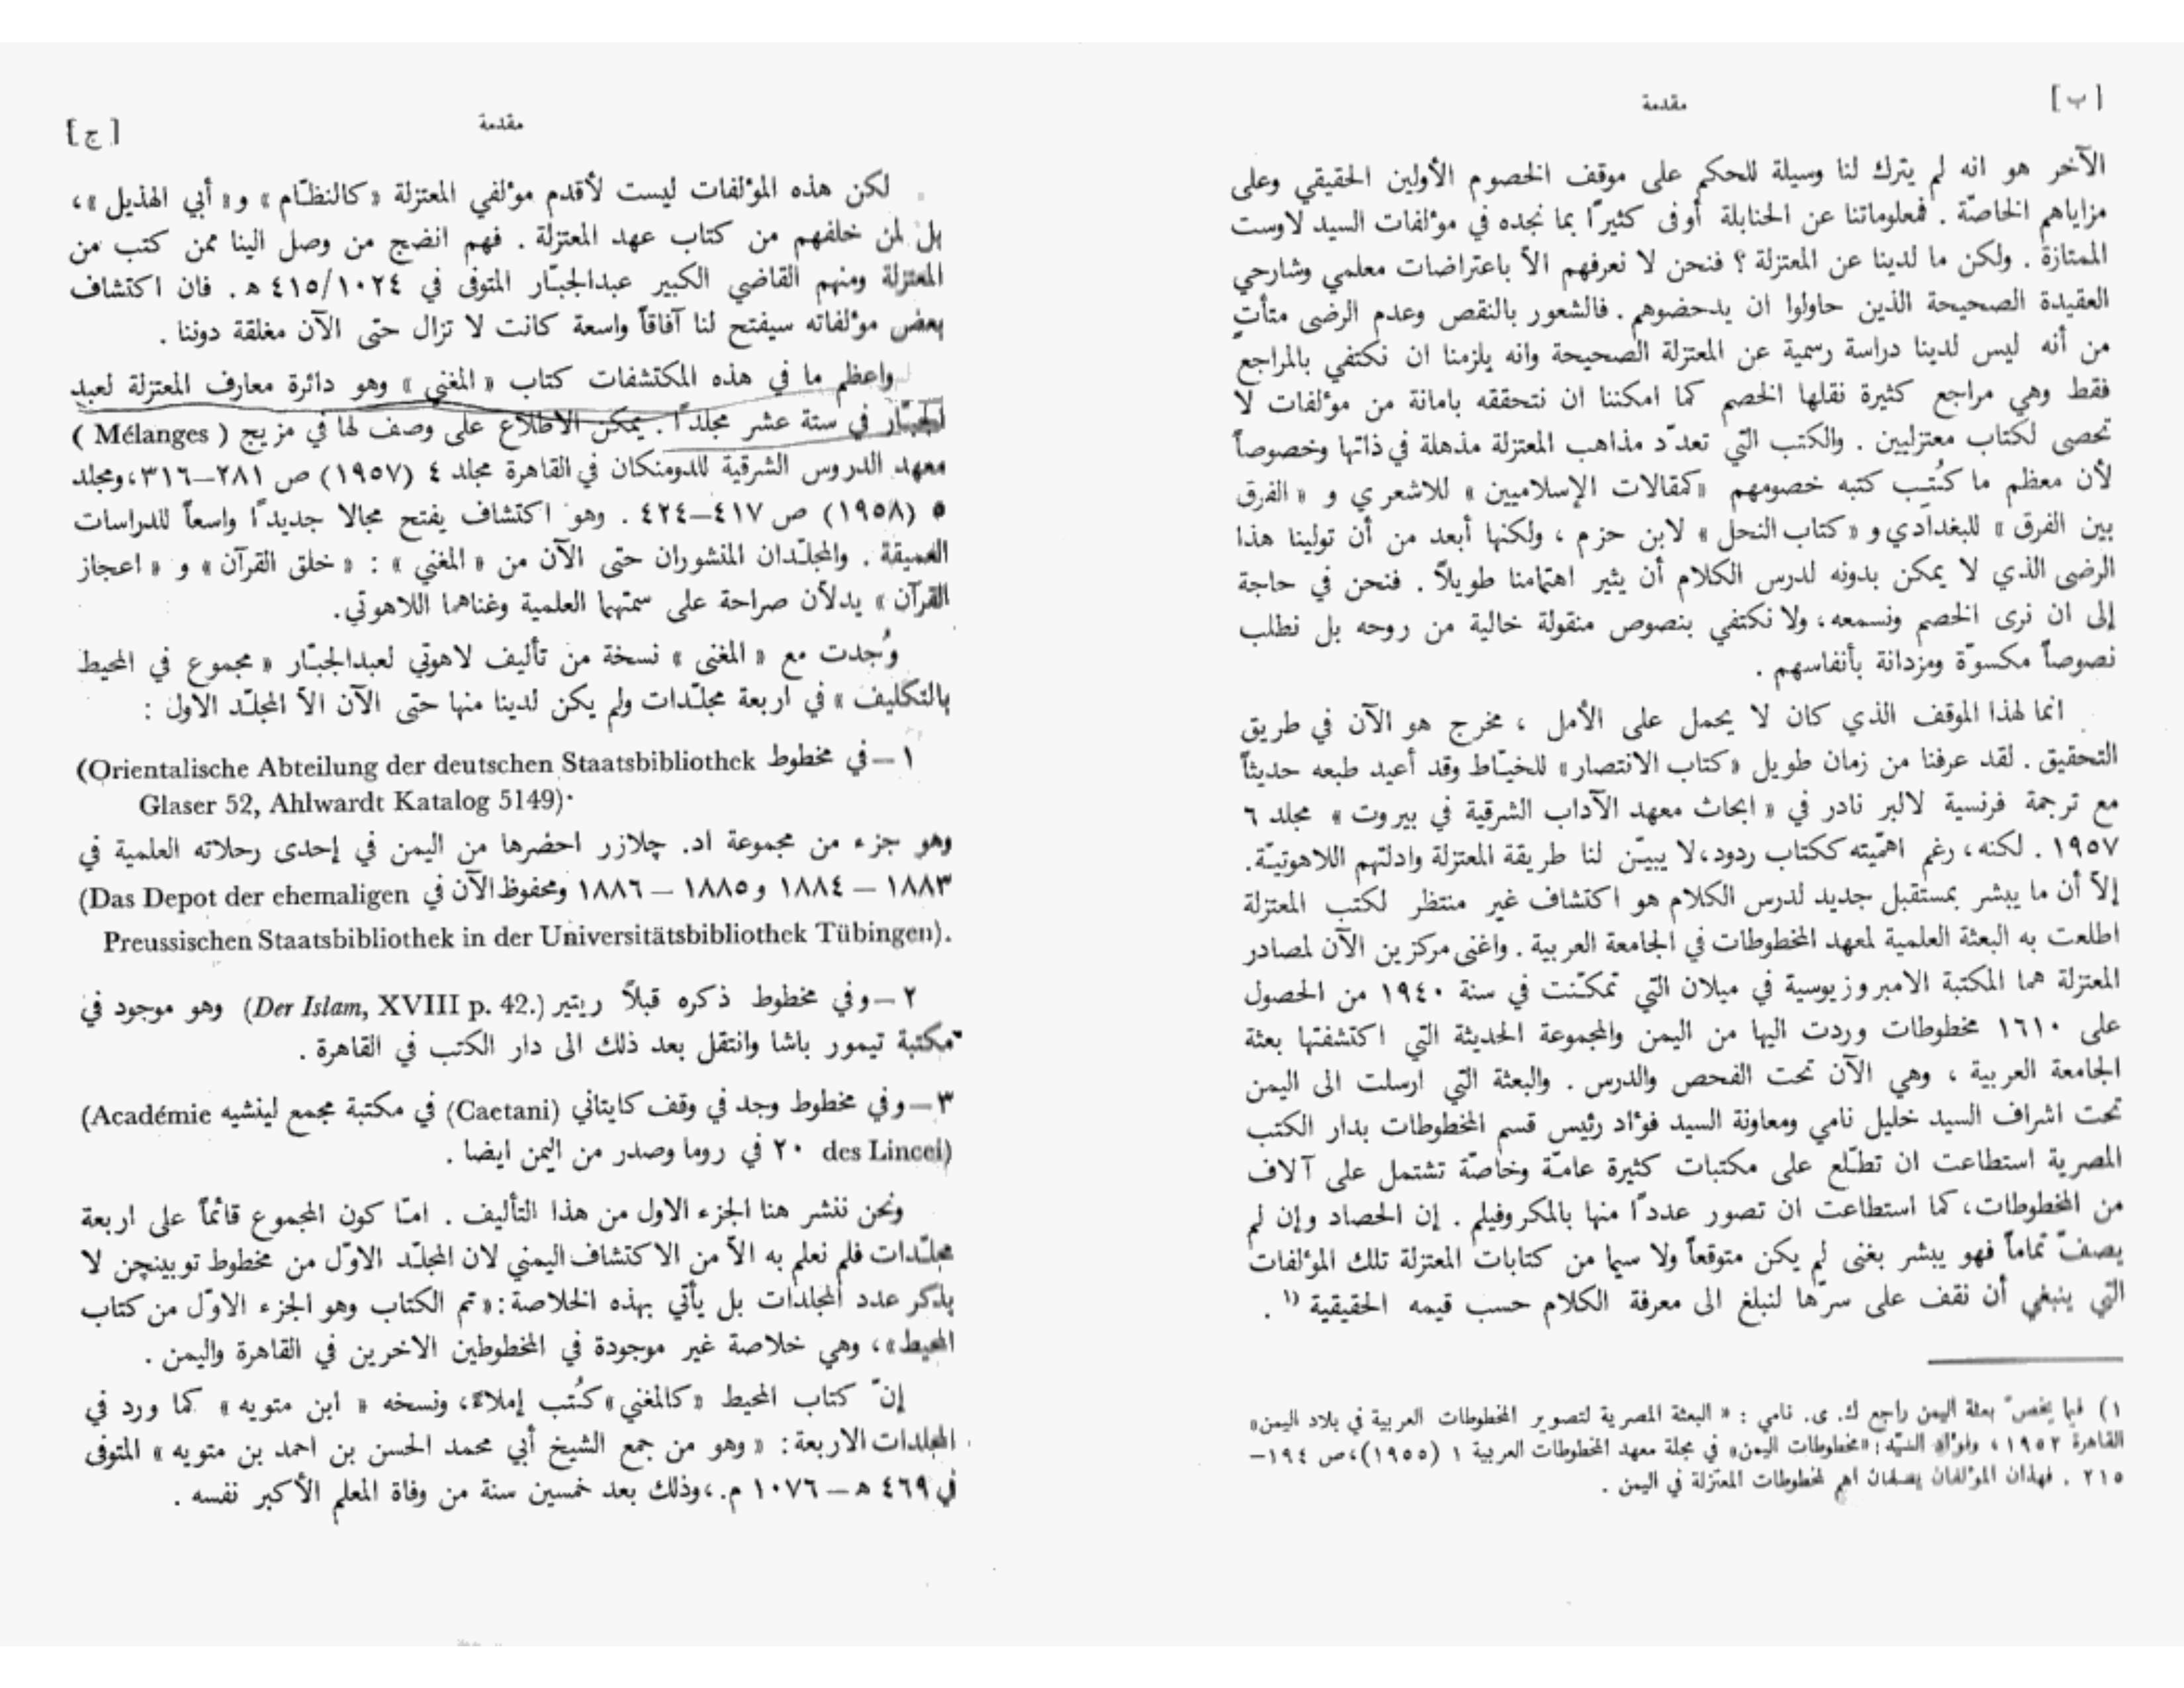 [ب]
مقدمة
الآخر هو انه لم يترك لنا وسيلة للحكم على موقف الخصوم الأولين الحقيقي وعلى
مزاياهم الخاصّة . فمعلوماتنا عن الحنابلة أوفى كثيرًا بما نجده في مؤلفات السيد لاوست
الممتازة . ولكن ما لدينا عن المعتزلة ؟ فنحن لا نعرفهم الاّ باعتراضات معلمي وشارحي
العقيدة الصحيحة الذين حاولوا ان يدحضوهم . فالشعور بالنقص وعدم الرضى متأتٍ
من أنه ليس لدينا دراسة رسمية عن المعتزلة الصحيحة وانه يلزمنا ان نكتفي بالمراجع
فقط وهي مراجع كثيرة نقلها الخصم كما امكننا ان نتحققه بامانة من مؤلفات لا
تحصى لكتاب معتزليين . والكتب التي تعدّد مذاهب المعتزلة مذهلة في ذاتها وخصوصاً
لأن معظم ما كُتيب كتبه خصومهم «كمقالات الإسلاميين » للاشعري و « الفرق
بين الفرق » للبغدادي و « كتاب النحل » لابن حزم ، ولكنها أبعد من أن تولينا هذا
الرضى الذي لا يمكن بدونه لدرس الكلام أن يثير اهتمامنا طويلاً . فنحن في حاجة
إلى ان نرى الخصم ونسمعه، ولا نكتفي بنصوص منقولة خالية من روحه بل نطلب
نصوصاً مكسوّة ومزدانة بأنفاسهم .
انما لهذا الموقف الذي كان لا يحمل على الأمل ، مخرج هو الآن في طريق
التحقيق . لقد عرفنا من زمان طويل «كتاب الانتصار» للخيّاط وقد أعيد طبعه حديثاً
مع ترجمة فرنسية لالبر نادر في « ابحاث معهد الآداب الشرقية في بيروت » مجلد ٦
١٩٥٧ . لكنه، رغم اهمّيته ككتاب ردود، لا يبيّن لنا طريقة المعتزلة وادلتهم اللاهوتيّة.
إلاّ أن ما يبشر بمستقبل جديد لدرس الكلام هو اكتشاف غير منتظر لكتب المعتزلة
اطلعت به البعثة العلمية لمعهد المخطوطات في الجامعة العربية . واغنى مركزين الآن لمصادر
المعتزلة هما المكتبة الامبروزيوسية في ميلان التي تمكّنت في سنة ١٩٤٠ من الحصول
على ١٦١٠ مخطوطات وردت اليها من اليمن والمجموعة الحديثة التي اكتشفتها بعثة
الجامعة العربية ، وهي الآن تحت الفحص والدرس . والبعثة التي ارسلت الى اليمن
تحت اشراف السيد خليل نامي ومعاونة السيد فؤاد رئيس قسم المخطوطات بدار الكتب
المصرية استطاعت ان تطّلع على مكتبات كثيرة عامّة وخاصّة تشتمل على آلاف
من المخطوطات، كما استطاعت ان تصور عددًا منها بالمكروفيلم . إن الحصاد وإن لم
يصفّ تماماً فهو يبشر بغنى لم يكن متوقعاً ولا سيما من كتابات المعتزلة تلك المؤلفات
التي ينبغي أن نقف على سرّها لنبلغ الى معرفة الكلام حسب قيمه الحقيقية (١ .
١) فيما يخصّ بعثة اليمن راجع ك. ى. نامي : « البعثة المصرية لتصوير المخطوطات العربية في بلاد اليمن»
القاهرة ١٩٥٢ ، وفؤاد السيّد : «مخطوطات اليمن» في مجلة معهد المخطوطات العربية ١ (١٩٥٥)، ص ١٩٤–
٢١٥ . فهذان المؤلفان يصفان اهم مخطوطات المعتزلة في اليمن .
[ج]
مقدمة
لكن هذه المؤلفات ليست لأقدم مؤلفي المعتزلة «كالنظّام » و« أبي الهذيل »،
بل لمن خلفهم من كتاب عهد المعتزلة . فهم انضج من وصل الينا ممن كتب من
المعتزلة ومنهم القاضي الكبير عبدالجبّار المتوفى في ٤١٥/١٠٢٤ ه . فان اكتشاف
بعض مؤلفاته سيفتح لنا آفاقاً واسعة كانت لا تزال حتى الآن مغلقة دوننا .
واعظم ما في هذه المكتشفات كتاب « المغني » وهو دائرة معارف المعتزلة لعبد
الجبّار في ستة عشر مجلدًا . يمكن الاطلاع على وصف لها في مزيج ( Mélanges )
معهد الدروس الشرقية للدومنكان في القاهرة مجلد ٤ (١٩٥٧) ص ٢٨١–٣١٦، ومجلد
٥ (١٩٥٨) ص ٤١٧–٤٢٤ . وهو اكتشاف يفتح مجالا جديدًا واسعاً للدراسات
العميقة . والمجلّدان المنشوران حتى الآن من « المغني » : « خلق القرآن » و « اعجاز
القرآن » يدلاّن صراحة على سمتهما العلمية وغناهما اللاهوتي.
وُجدت مع « المغنى » نسخة من تأليف لاهوتي لعبدالجبّار « مجموع في المحيط
بالتكليف » في اربعة مجلّدات ولم يكن لدينا منها حتى الآن الاّ المجلّد الاول :
١ – في مخطوط (Orientalische Abteilung der deutschen Staatsbibliothek
Glaser 52, Ahlwardt Katalog 5149)·
وهو جزء من مجموعة اد. چلازر احضرها من اليمن في إحدى رحلاته العلمية في
١٨٨٣ – ١٨٨٤ و ١٨٨٥ – ١٨٨٦ ومحفوظ الآن في (Das Depot der ehemaligen
Preussischen Staatsbibliothek in der Universitätsbibliothek Tübingen).
٢ – وفي مخطوط ذكره قبلاً ريتير (Der Islam, XVIII p. 42.) وهو موجود في
مكتبة تيمور باشا وانتقل بعد ذلك الى دار الكتب في القاهرة .
٣ – وفي مخطوط وجد في وقف كايتاني (Caetani) في مكتبة مجمع لينشيه (Académie
des Lincei) ٢٠ في روما وصدر من اليمن ايضا .
ونحن ننشر هنا الجزء الاول من هذا التأليف . امّا كون المجموع قائماً على اربعة
مجلّدات فلم نعلم به الاّ من الاكتشاف اليمني لان المجلّد الاوّل من مخطوط توبينچن لا
يذكر عدد المجلدات بل يأتي بهذه الخلاصة : «تم الكتاب وهو الجزء الاوّل من كتاب
المحيط»، وهي خلاصة غير موجودة في المخطوطين الاخرين في القاهرة واليمن .
إنّ كتاب المحيط «كالمغني» كُتب إملاءً، ونسخه « ابن متويه » كما ورد في
المجلدات الاربعة : « وهو من جمع الشيخ أبي محمد الحسن بن احمد بن متويه » المتوفى
في ٤٦٩ ه – ١٠٧٦ م.، وذلك بعد خمسين سنة من وفاة المعلم الأكبر نفسه .